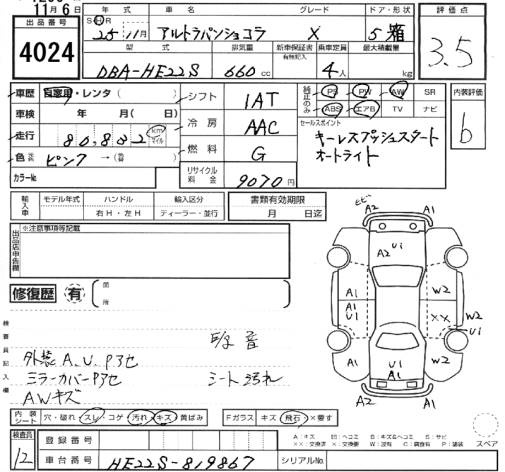 11月6日
出品番号
4024
年式 車名 グレード ドア・形状
S H R 25年11月 アルトラパンショコラ X 5 箱
評価点
3.5
型式 排気量 新車保証書 有無記入 乗車定員 最大積載量
DBA-HE22S 660cc 4人 kg
車歴 自家用・レンタ( )
車検 年 月( 日)
走行 80,832 km マイル
色 ピンク →(替 )
カラーNo.
シフト IAT
冷房 AAC
燃料 G
リサイクル料金 9070円
純正のみ PS PW AW SR
ABS エアB TV ナビ
内装評価
b
セールスポイント
キーレスプッシュスタート
オートライト
輸入車 モデル年式 ハンドル 輸入区分
右H・左H ディーラー・並行
書類有効期限
月 日迄
出品店申告欄
※注意事項等記載
修復歴 有 箇所
検査員記入欄
外装A.U.P3セ
ミラーカバーP3セ シート汚れ
AWキズ
A2 A1
U1
A2
A1 W2
A1 A1 U1 XX W2 U1
A1 W2
U1 A1
A2 A1
内装シート 穴・破れ・スレ コゲ 汚れ・キズ 黄ばみ
Fガラス キズ 飛石 ×要す
A:キズ U:ヘコミ B:キズ&ヘコミ S:サビ
××:交換済 ×:要交換 W:波有 C:腐食有 P:塗装 スペア
検査員
12
登録番号
車台番号 HE22S-819867 シリアルNo.